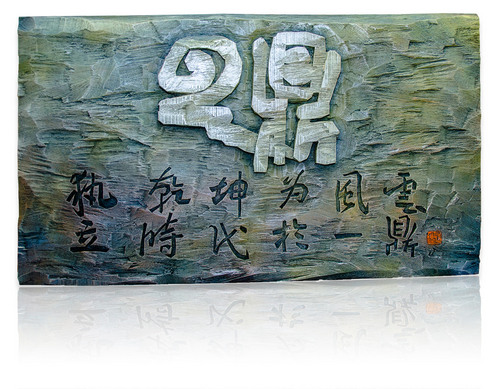 云鼎
執乾坤为風雲
立時代於一鼎